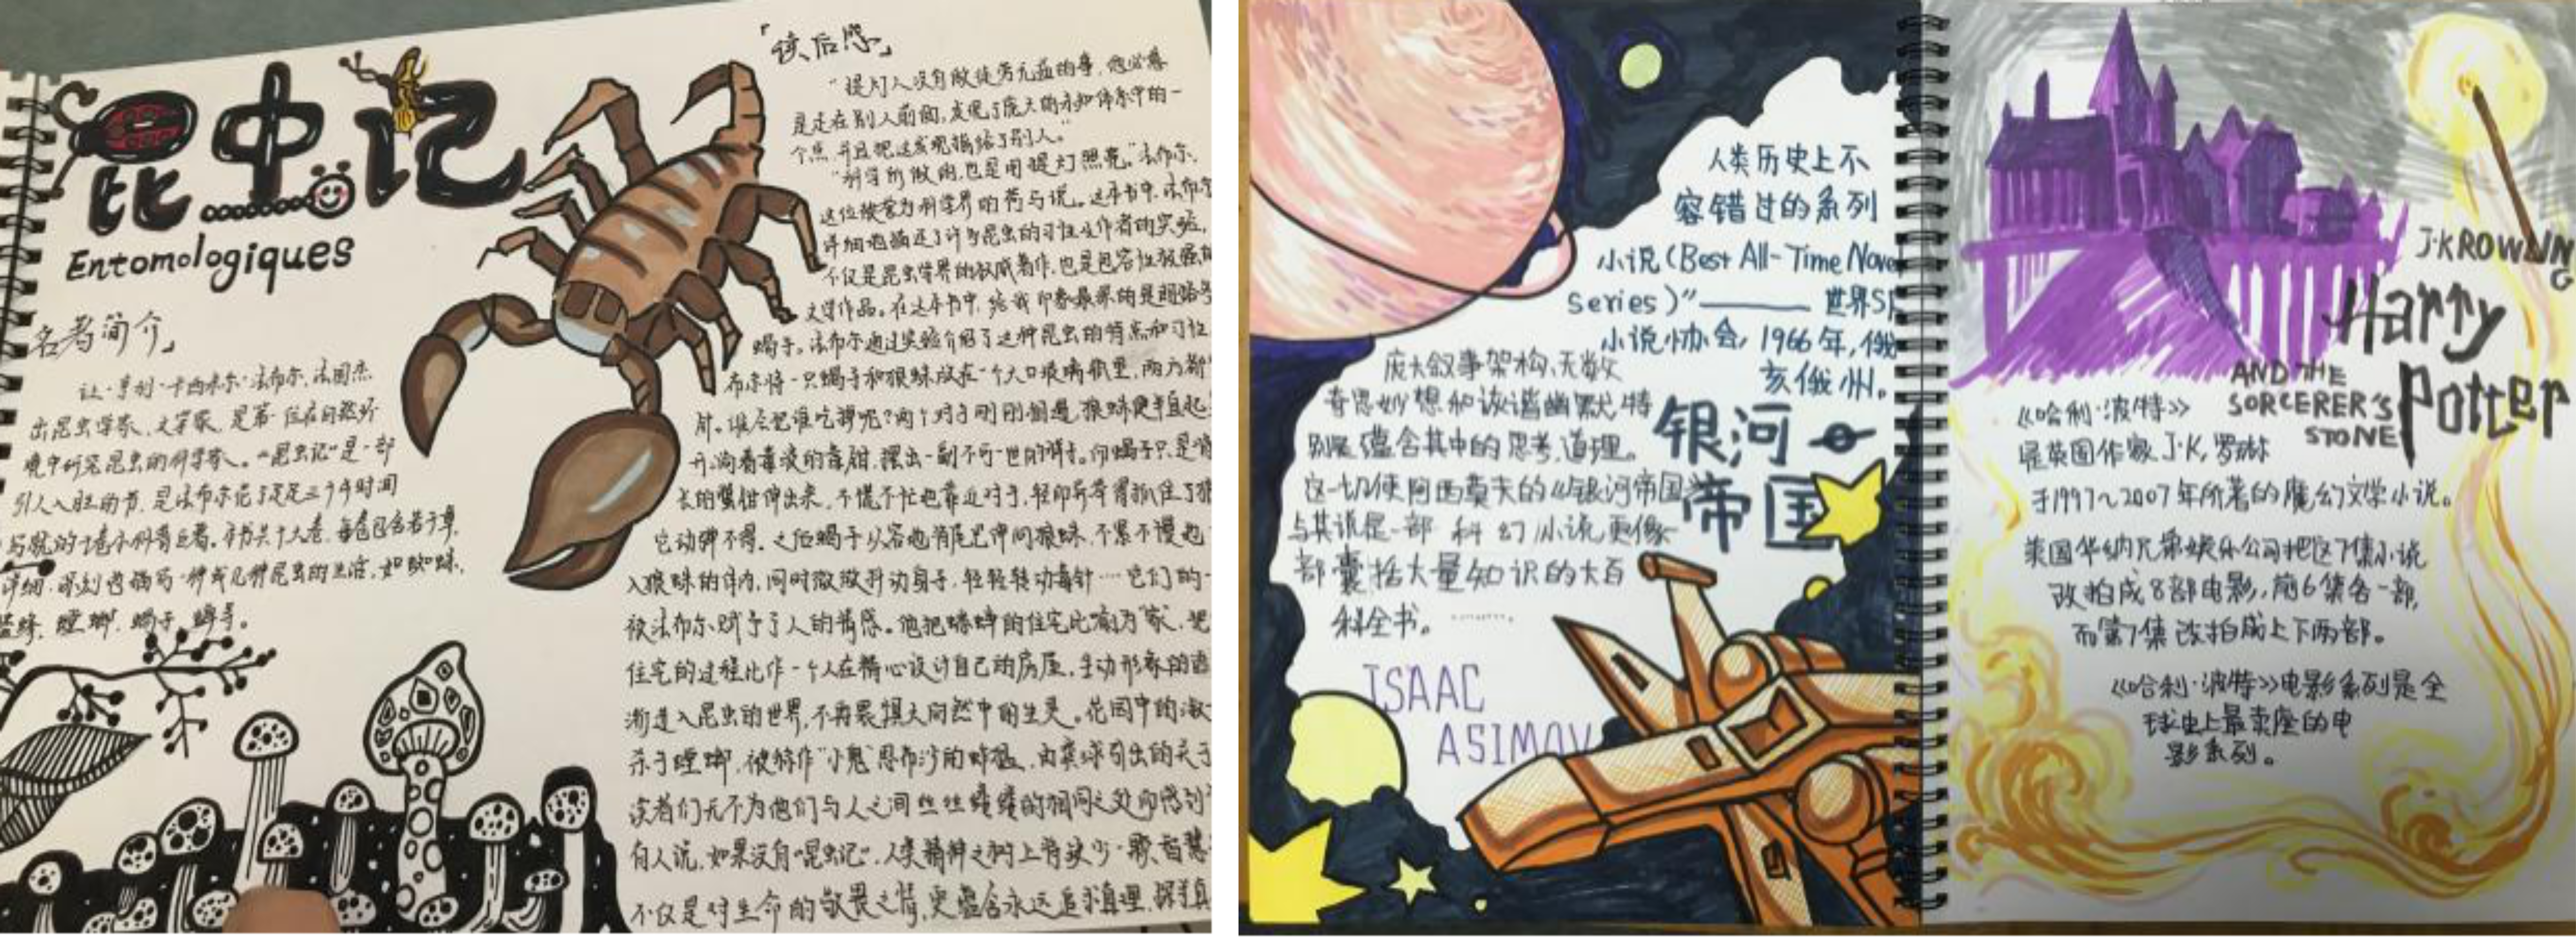 昆虫记
Entomologiques
「读后感」
"提灯人没有做徒劳无益的事，他必意
是走在别人前面，发现了庞大的未知体系中的一
个点，并且把这发现指给了别人。"
"科学所做的，也是用提灯照亮。"法布尔，
这位被誉为科学界的荷马说。这本书中，法布尔
详细地描述了许多昆虫的习性及作者的实验，
不仅是昆虫学界的权威著作，也是包容性极强的
文学作品。在这本书中，给我印象最深的是
蝎子。法布尔通过实验介绍了这种昆虫的特点和习性
布尔将一只蝎子和狼蛛放在一个大口玻璃瓶里，两方都
肘。谁会把谁吃掉呢？两个对手刚刚相遇，狼蛛便半直起
开淌着毒液的毒钳，摆出一副不可一世的样子。而蝎子只是
长的螯钳伸出来，不慌不忙地靠近对手，轻而易举得抓住了狼
它动弹不得。之后蝎子从容地将尾巴伸向狼蛛，不紧不慢地
入狼蛛的体内，同时微微抖动身子，轻轻转动毒针……它们的一
被法布尔赋予了人的情感。他把蟋蟀的住宅比喻为"家"，把
住宅的过程比作一个人在精心设计自己的房屋，生动形象的语
渐进入昆虫的世界，不再畏惧大自然中的生灵。花园中的
杀手螳螂，被称作"小鬼"恩布沙的，由粪球引出的关于
读者们无不为他们与人之间丝丝缕缕的相同之处而感到
有人说，如果没有"昆虫记"，人类精神之树上将缺少一颗智慧
不仅是对生命的敬畏之情，更蕴含永远追求真理，探求真
名著简介」
让·亨利·卡西米尔·法布尔，法国杰
出昆虫学家，文学家，是第一位在自然环
境中研究昆虫的科学家。"昆虫记"是一部
引人入胜的书，是法布尔花了足足三十年时间
写就的十卷本科普巨著。书共十大卷，每卷包含若干章，
详细、深刻地描写一种或几种昆虫的生活，如蜘蛛、
蜜蜂、螳螂、蝎子、蝉等。
人类历史上不
容错过的系列
小说（Best All-Time Nove
series）"——世界SF
小说协会，1966年，俄
亥俄州。
庞大叙事架构、无数
奇思妙想和诙谐幽默，特
别是蕴含其中的思考、道理。
这一切使阿西莫夫的《银河帝国》
与其说是一部科幻小说，更像一
部囊括大量知识的大百
科全书。……
银河
帝国
ISAAC
ASIMOV
J·K ROWLING
Harry
Potter
AND THE
SORCERER'S
STONE
《哈利·波特》
是英国作家J·K，罗琳
于1997~2007年所著的魔幻文学小说。
美国华纳兄弟娱乐公司把这7集小说
改拍成8部电影，前6集各一部，
而第7集改拍成上下两部。
《哈利·波特》电影系列是全
球史上最卖座的电
影系列。